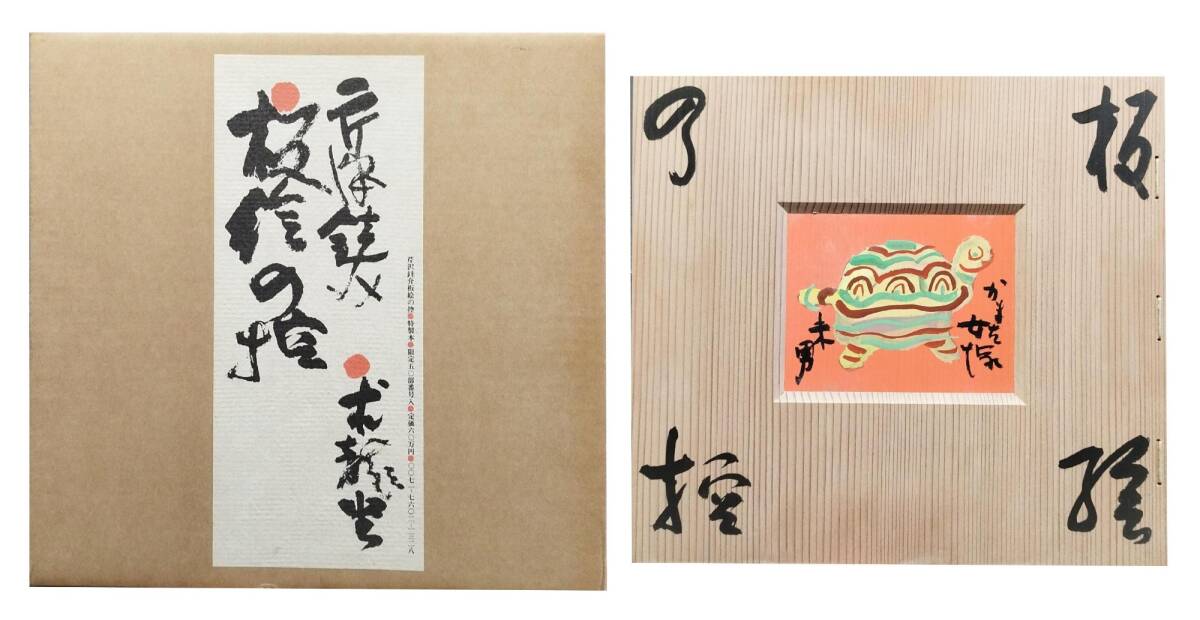 芹沢銈介板絵の控●特製本●限定五〇部番号入●定価六〇万円●〇〇七一-七六〇二-一三二八
芹澤銈介
求龍堂
板絵の控
板
繪
の
控
かまた
女塚
未男